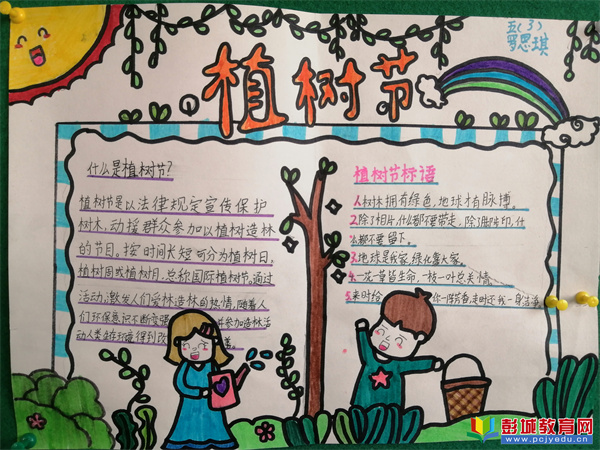 五(3)
罗思琪
植树节
什么是植树节?
植树节是以法律规定宣传保护
树木,动援群众参加以植树造林
的节日。按时间长短可分为植树日、
植树周或植树月,总称国际植树节。通过
活动,激发人们爱林造林的热情,随着人
们环保意识不断变强 并参加造林活
动人类
植树节标语
1.树林拥有绿色,地球才有脉搏。
2.除了相片,什么都不要带走,除了脚印,什
么都不要留下。
3.地球是我家,绿化靠大家。
4.一花一草皆生命,一枝一叶总关情。
5.来时给 你一阵芳香,走时还我一身洁
彭城教育网
www.pcjyedu.cn